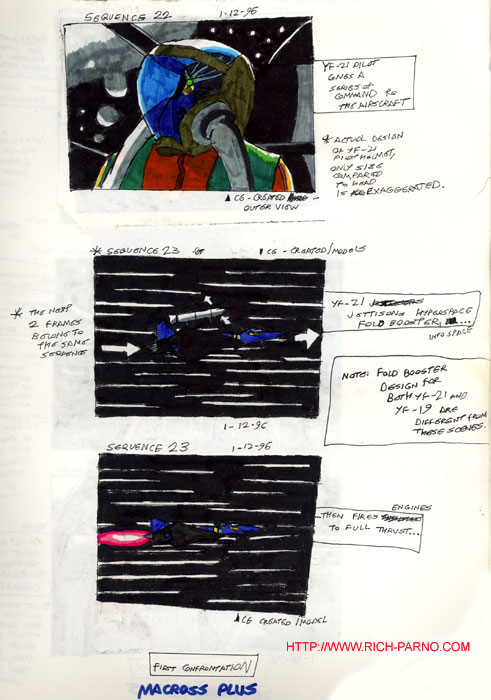 SEQUENCE 22
1-12-96
YF-21 PILOT
GIVES A
SERIES OF
COMMAND TO
THE AIRSCRAFT
* ACTUAL DESIGN
OF YF-21
PILOT HELMET,
ONLY SIZE
COMPARED
TO HEAD
IS EXAGGERATED.
▲ CG - CREATED
OUTER VIEW
* SEQUENCE 23
CG - CREATED/MODELS
* THE NEXT
2 FRAMES
BELONG TO
THE SAME
SEQUENCE
YF-21
JETTISONS HYPERSPACE
FOLD BOOSTER,
INTO SPACE
1-12-96
NOTE: FOLD BOOSTER
DESIGN FOR
BOTH YF-21 AND
YF-19 ARE
DIFFERENT FROM
THESE SCENES.
SEQUENCE 23
1-12-96
ENGINES
...THEN FIRES
TO FULL THRUST...
▲ CG CREATED/MODEL
HTTP://WWW.RICH-PARNO.COM
FIRST CONFRONTATION
MACROSS PLUS